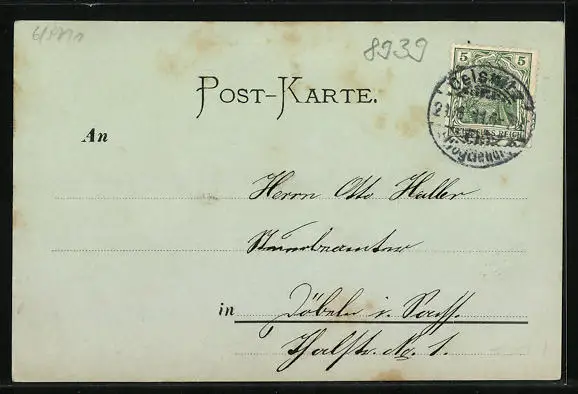 8939
5 5
Oelsnitz
POST-KARTE.
DEUTSCHES REICH
(Vogtland)
An
Herrn Otto Haller
in Döbeln i. Sachs.
Thalstr. No. 1.